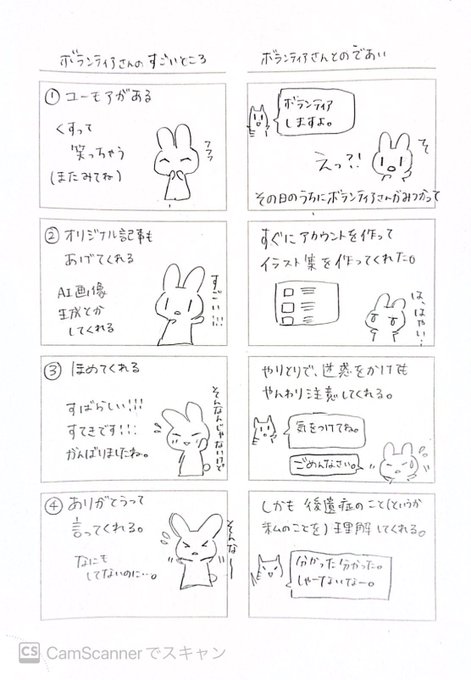 ボランティアさんとのであい
ボランティア
しますよ。
えっ?!
その日のうちにボランティアさんがみつかって
すぐにアカウントを作って
イラスト集を作ってくれた。
は、はやい…
やりとりで、迷惑をかけても
やんわり注意してくれる。
気をつけてね。
ごめんなさい。
しかも後遺症のこと(というか
私のことを)理解してくれる。
分かった分かった。
しゃーないなー。
ボランティアさんのすごいところ
① ユーモアがある
くすって
笑っちゃう
(またみてね)
フフッ
② オリジナル記事も
あげてくれる
AI画像
生成とか
してくれる
すごい!!!
③ ほめてくれる
すばらしい!!!
すてきです!!!
がんばりましたね。
そんなんじゃないけど
④ ありがとうって
言ってくれる。
なにも
してないのに…。
そんなー
CS CamScannerでスキャン